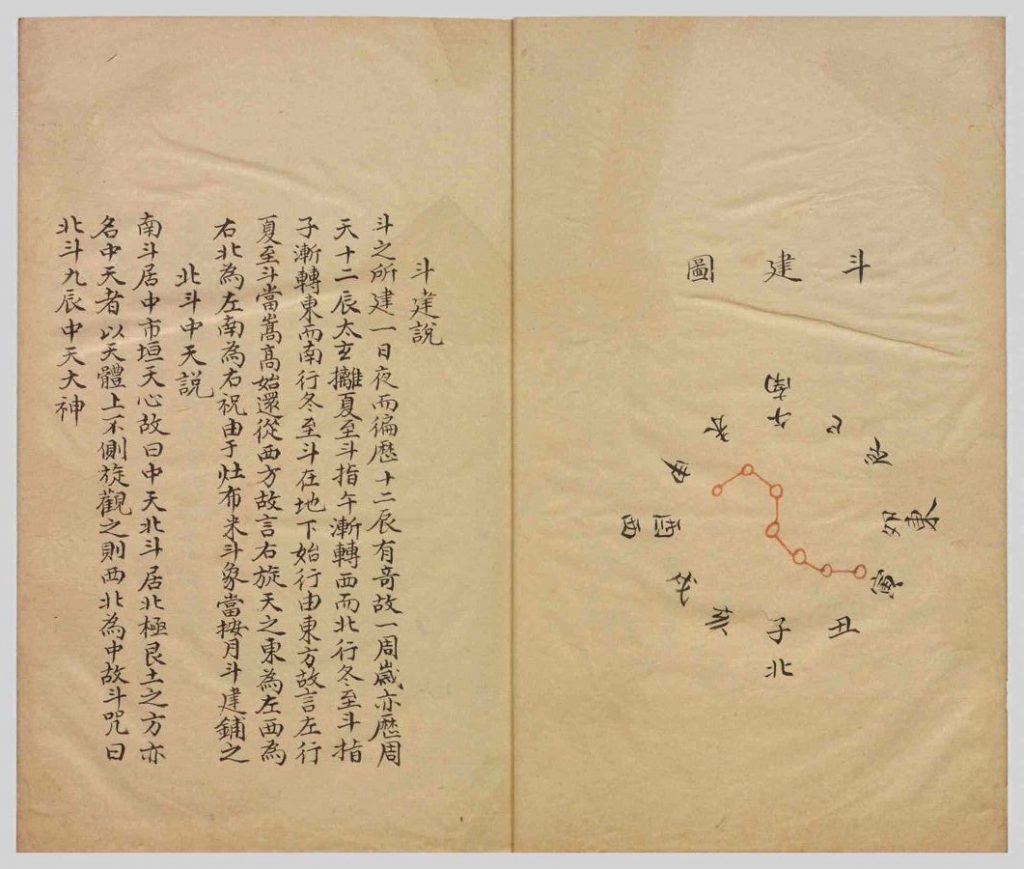 斗建圖
南
午
巳
辰
卯
東
寅
丑
子
北
亥
戌
酉
西
申
未
斗建說
斗之所建一日夜而徧歷十二辰有奇故一周歲亦歷周
天十二辰太玄攡夏至斗指午漸轉西而北行冬至斗指
子漸轉東而南行冬至斗在地下始行由東方故言左行
夏至斗當嵩高始還從西方故言右旋天之東為左西為
右北為左南為右祝由于灶布米斗象當按月斗建鋪之
北斗中天說
南斗居中市垣天心故曰中天北斗居北極艮土之方亦
名中天者以天體上不側旋觀之則西北為中故斗咒曰
北斗九辰中天大神